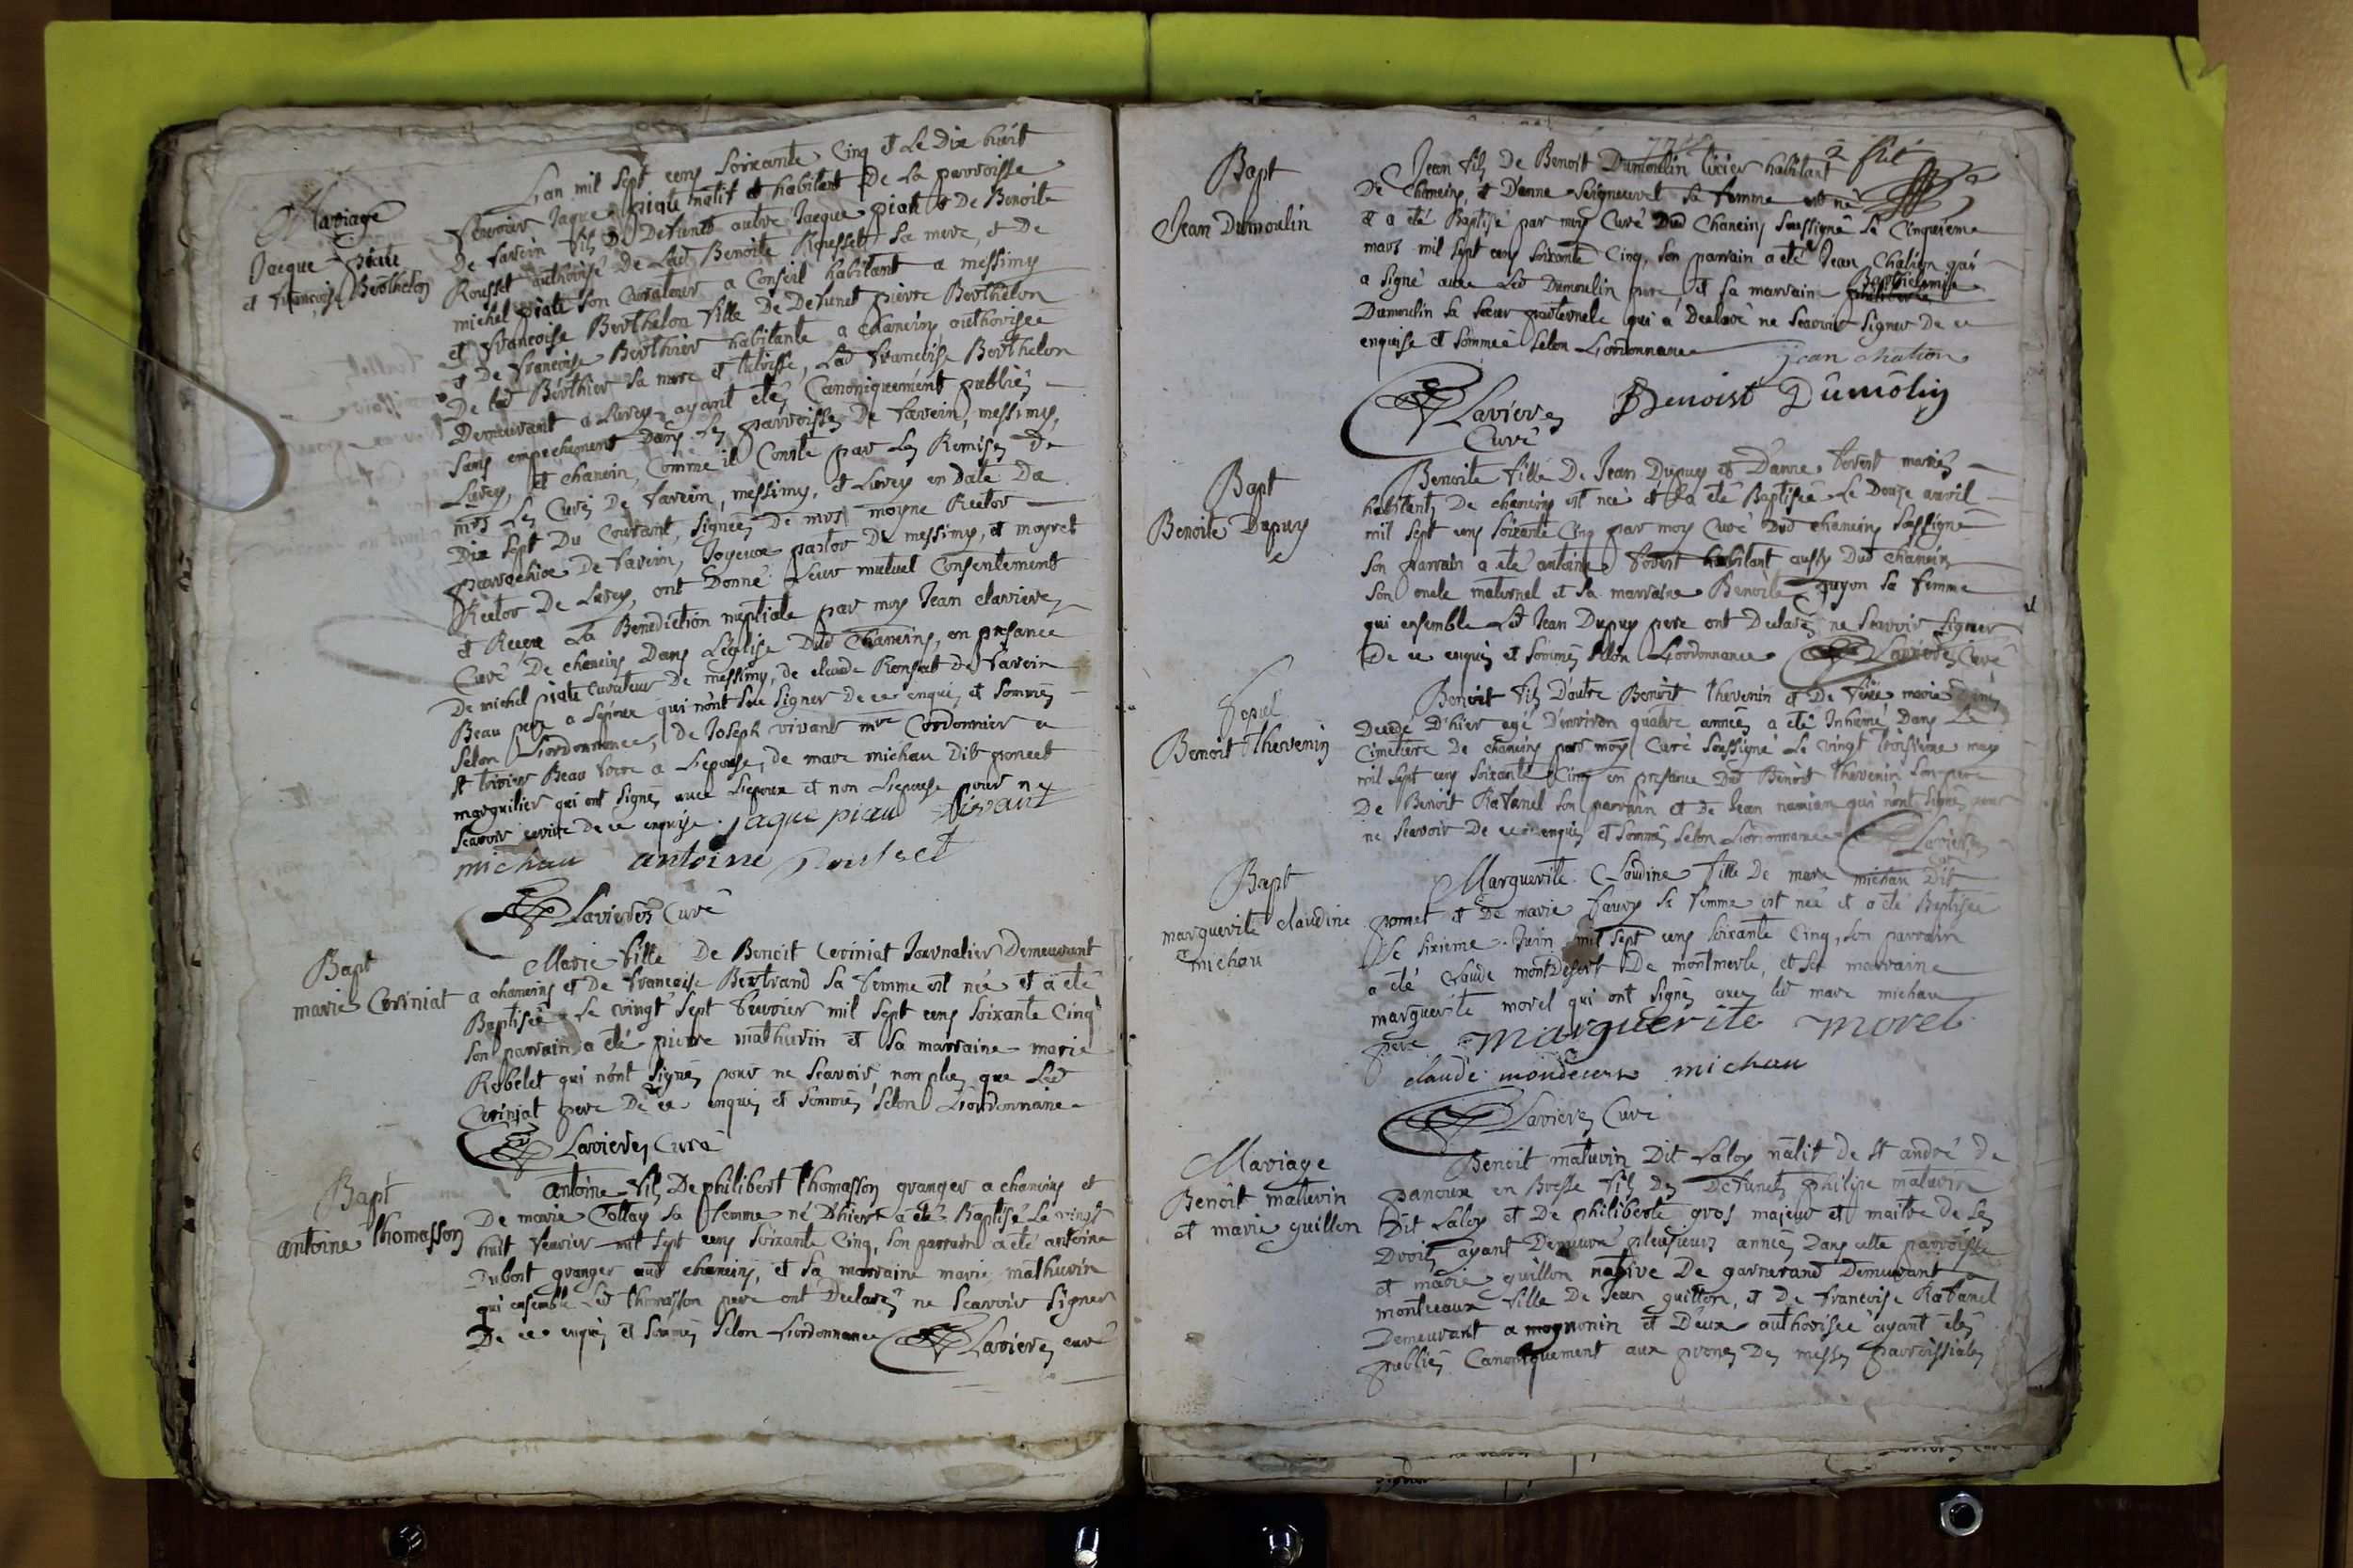 Mariage
Jaeque piate
et françoise Berthelon
Lan mil sept cens soixante cinq et le Dix huit
fevrier Jaque piate natif et habitant De La parroisse
De farein fils De Defunct autre Jaeque piate et De Benoite
Rousset authorisé De Lad Benoite Rousset sa mere, et De
michel piate son Curateur a Conseil habitant a messimy
et françoise Berthelon fille De Defunct pierre Berthelon
et De françoise Berthier habitante a chaneins authorisée
De lad Berthier sa mere et tutrisse, Lad françoise Berthelon
Demeurant a Lurcy ayant etés Canoniquement publiés
sans empechement Dans les parroisses De farein, messimy,
Lurcy, et chanein, Comme il Conste par Les Remises de
mrs Les Curés De farein, messimy, et Lurcy en Date Du
Dix sept Du Courant, signées De mrs moyne Rector
parrochiæ De farein, Joyeux pastor De messimy, et moyret
Rector De Lurcy, ont Donné Leur mutuel Consentement
et Receu La Benediction nuptiale par moy Jean claviere
Curé De chaneins Dans L'eglise Dud Chaneins, en presance
De michel piate curateur De messimy, de claude Ronsat de farein
Beau pere a Lepoux qui n'ont sçu signer De ce enquis et sommés
selon L'ordonnance, De Joseph vivant mre Cordonnier a
st trivier Beau frere a L'epouse, de marc michau Dit ponet
marguilier qui ont signés avec L'epoux et non L'epouse pour ne
scavoir ecrire de ce enquise. jaque piau vivant
michau antoine Rousset
Lavieres Curé
Bapt
marie Ceriniat
Marie fille De Benoit Ceriniat Journalier Demeurant
a chaneins et De françoise Bertrand sa femme est née et a eté
Baptisée Le vingt sept fevrier mil sept cens soixante Cinq
son parrain a eté pierre mathurin et sa marraine marie
Robelet qui n'ont signés pour ne scavoir, non plus que Led
Ceriniat pere De ce enquis et sommés selon L'ordonnance
Lavieres Curé
Bapt
antoine thomasson
antoine fils De philibert thomasson granger a chaneins et
De marie Collay sa femme né D'hier a eté Baptisé Le vingt
huit fevrier mil sept cens soixante Cinq, son parrain a eté antoine
Dubost granger aud chaneins, et sa marraine marie mathurin
qui ensemble Led thomasson pere ont Declarés ne scavoir signer
De ce enquis et sommés selon L'ordonnance Lavieres curé
Bapt
Jean Dumoulin
Jean fils De Benoit Dumoulin habitant
De chaneins, et D'anne seigneuret sa femme est né
et a eté Baptisé par moy Curé Dud Chaneins soussigné Le Cinquieme
mars mil sept cens soixante Cinq, son parrain a eté Jean Chation qui
a signé avec Led Dumoulin pere, et sa marraine Barthelemie
Dumoulin sa sœur paternele qui a Declaré ne scavoir signer De ce
enquise et sommée selon L'ordonnance jean chation
Benoist Dumôlin
Lavieres
Curé
Bapt
Benoite Dupuy
Benoite fille De Jean Dupuy et D'anne fovert mariés
habitants De chaneins est née et a eté Baptisée Le Douze avril
mil sept cens soixante Cinq par moy Curé Dud chaneins soussigné
son parrain a eté antoine fovert habitant aussy Dud chanein
son oncle maternel et sa marraine Benoite guyon sa femme
qui ensemble Led Jean Dupuy pere ont Declarés ne scavoir signer
De ce enquis et sommés selon L'ordonnance Lavieres Curé
Sepul
Benoit thevenin
Benoit fils D'autre Benoit thevenin et De feüe marie
Decedé D'hier agé D'environ quatre années a eté Inhumé Dans Le
Cimetiere De chaneins par moy Curé soussigné Le vingt troisieme may
mil sept cens soixante Cinq en presance Dud Benoit thevenin son pere
De Benoit Rafanel son parrain et De Jean namian qui n'ont signés pour
ne scavoir De ce enquis et sommés selon L'ordonnance Lavieres
Bapt
marguerite claudine
michau
Marguerite Claudine fille De marc michau Dit
ponet et De marie faury sa femme est née et a eté Baptisée
Le sixieme Juin mil sept cens soixante Cinq, son parrain
a eté claude montDesert De montmerle, et sa marraine
marguerite morel qui ont signés avec led marc michau
pere Marguerite morel
claude mondesert michau
Lavieres Curé
Mariage
Benoit maturin
et marie guillon
Benoit maturin Dit Laloy natif de st andré de
panoux en Bresse fils Des Defuncts philipe maturin
Dit Laloy et De philiberte gros majeur et maitre de ses
Droits ayant Demeuré plusieurs années Dans cette parroisse
et marie guillon native De garnerand Demeurant a
montceaux fille De Jean guillon, et De francoise Rafanel
Demeurant a mognonin et D'eux authorisée ayant étés
publiés Canoniquement aux prones Des messes parroissiales